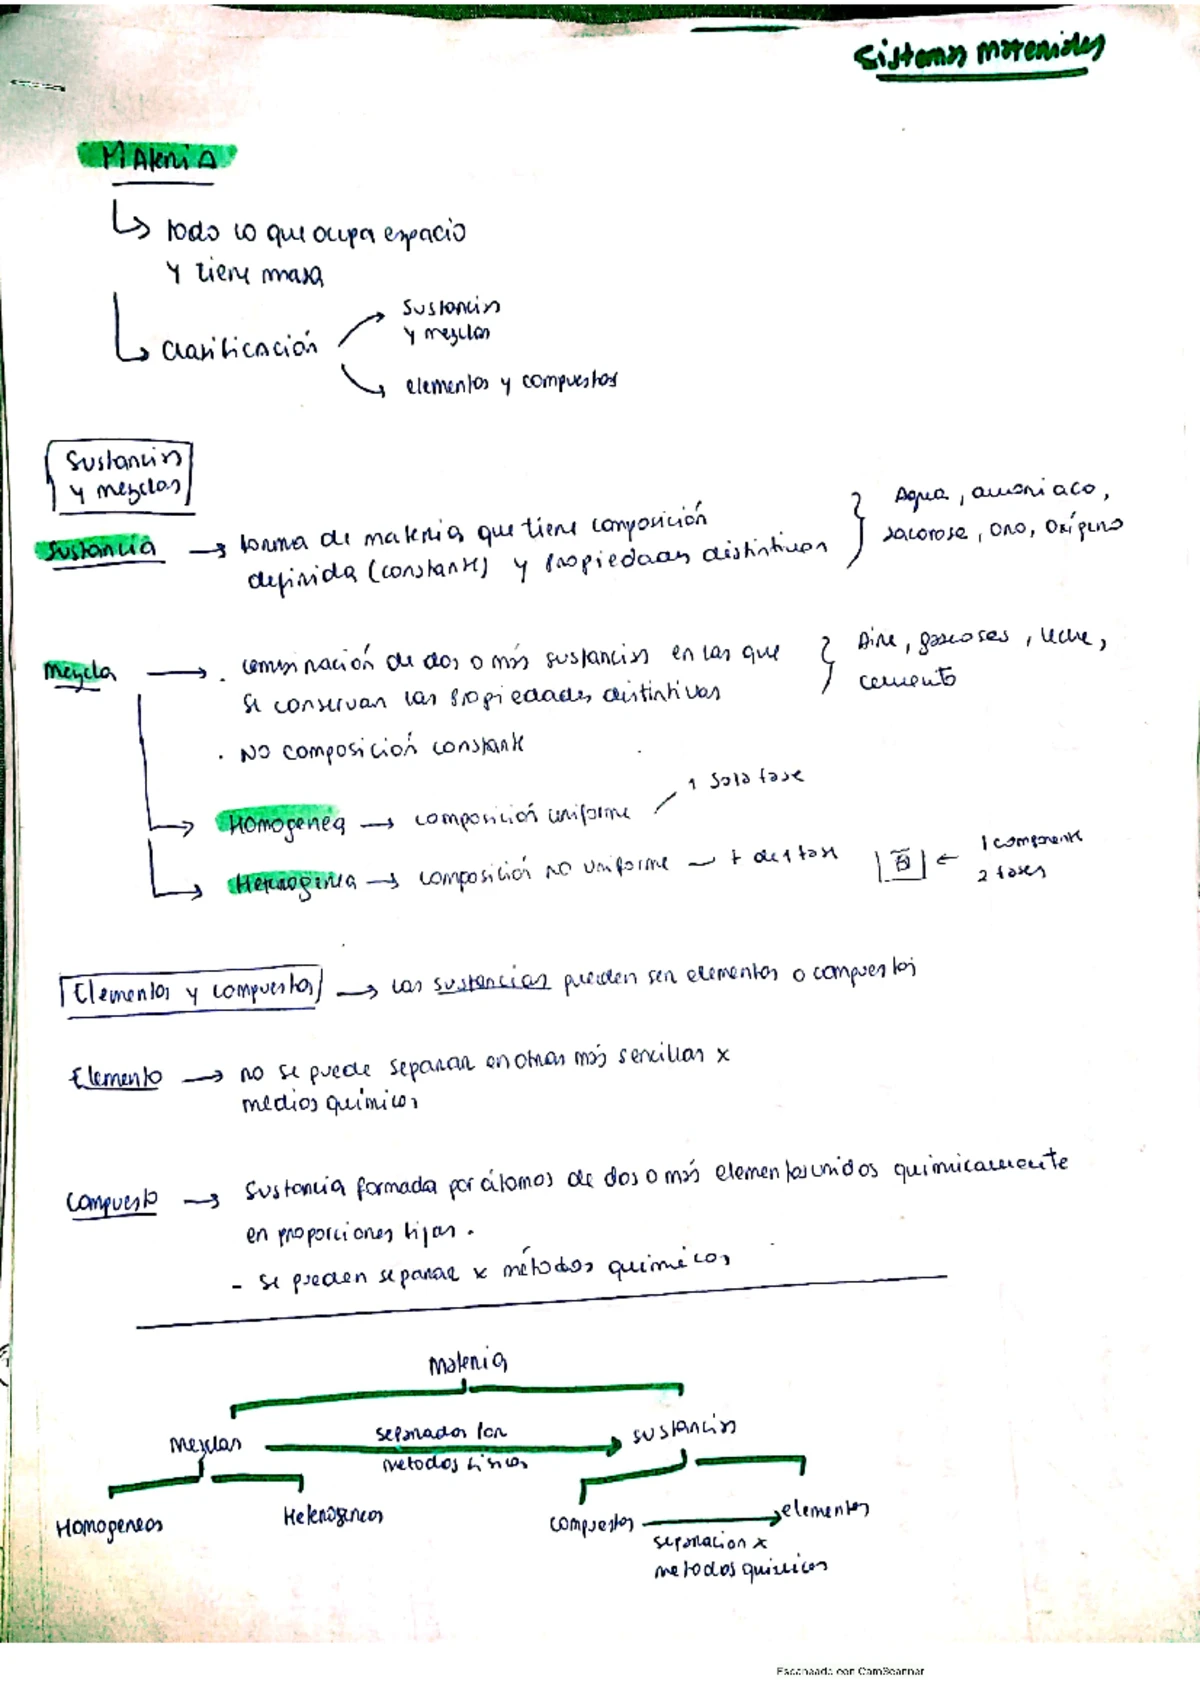 Sistemas materiales
MAteriA
todo lo que ocupa espacio
y tiene masa
Clasificación
sustancias
y mezclas
elementos y compuestos
Sustancias
y mezclas
Sustancia → forma de materia que tiene composición
definida (constante) y propiedades distintivas
Agua, amoniaco,
sacorosa, oro, oxígeno
Mezcla → . combinación de dos o más sustancias en las que
se conservan las propiedades distintivas
Aire, gaseosas, leche,
cemento
. NO composición constante
Homogenea → composición uniforme
1 sola fase
Heterogenea → composición no uniforme → + de 1 fase
1 componente
2 fases
Elementos y compuestos → las sustancias pueden ser elementos o compuestos
Elemento → no se puede separar en otras más sencillas x
medios químicos
Compuesto → sustancia formada por átomos de dos o más elementos unidos quimicamente
en proporciones fijas.
- se pueden separar x métodos quimicos
Materia
Mezclas
separadas por
metodos fisicos
sustancias
Homogeneas
Heterogeneas
compuestos
elementos
separacion x
metodos quimicos
Escaneado con CamScanner